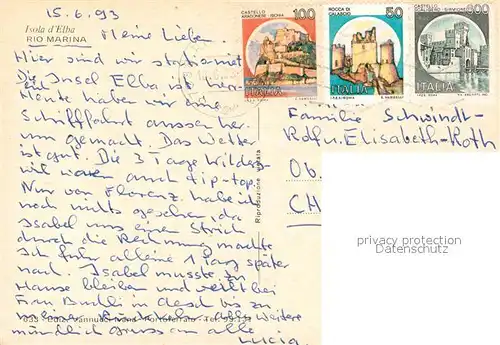 15.6.93
Isola d'Elba
RIO MARINA
Meine Lieben
Hier sind wir stationiert
Die Insel Elba ist herr-
Heute haben wir eine
Schiffahrt aussen her-
um gemacht. Das Wetter
ist gut. Die 3 Tage
waren auch tip-top.
Nur von Florenz habe ich
noch nichts gesehen, da
Isabel uns einen Strich
durch die Rechnung machte
Ich fuhr alleine 1 Tag später
nach. Isabel musste zu
Hause bleiben und weilt bei
Frau in bis zu
alles Weitere
mündlich Gruss an alle
Lucia
Ediz. Vannucci Portoferraio - Tel. 93.131
Riproduzione vietata
CASTELLO ARAGONESE - ISCHIA 100
ITALIA
ROCCA DI CALASCIO 50
ITALIA
CASTELLO SCALIGERO - SIRMIONE 600
ITALIA
Familie Schwindt-
Rolf u. Elisabeth-Roth
Ob.
CH
privacy protection
Datenschutz